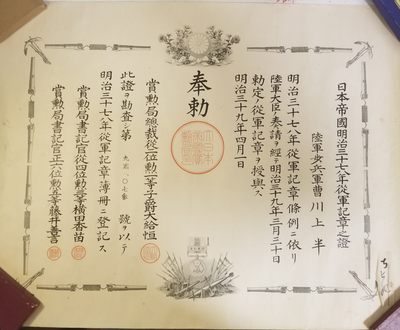 日本帝國明治三十七八年從軍記章之證
陸軍步兵軍曹 川上半
明治三十七八年從軍記章條例ニ依リ
陸軍大臣ノ奏請ヲ經テ明治三十九年三月三十日
勅定ノ從軍記章ヲ授與ス
明治三十九年四月一日
奉勅
賞勲局總裁從二位勲一等子爵大給恒
此證ヲ勘査シ第 號ヲ以テ
明治三十七八年從軍記章簿冊ニ登記ス
賞勲局書記官從四位勲三等横田香苗
賞勲局書記官正六位勲五等藤井善言